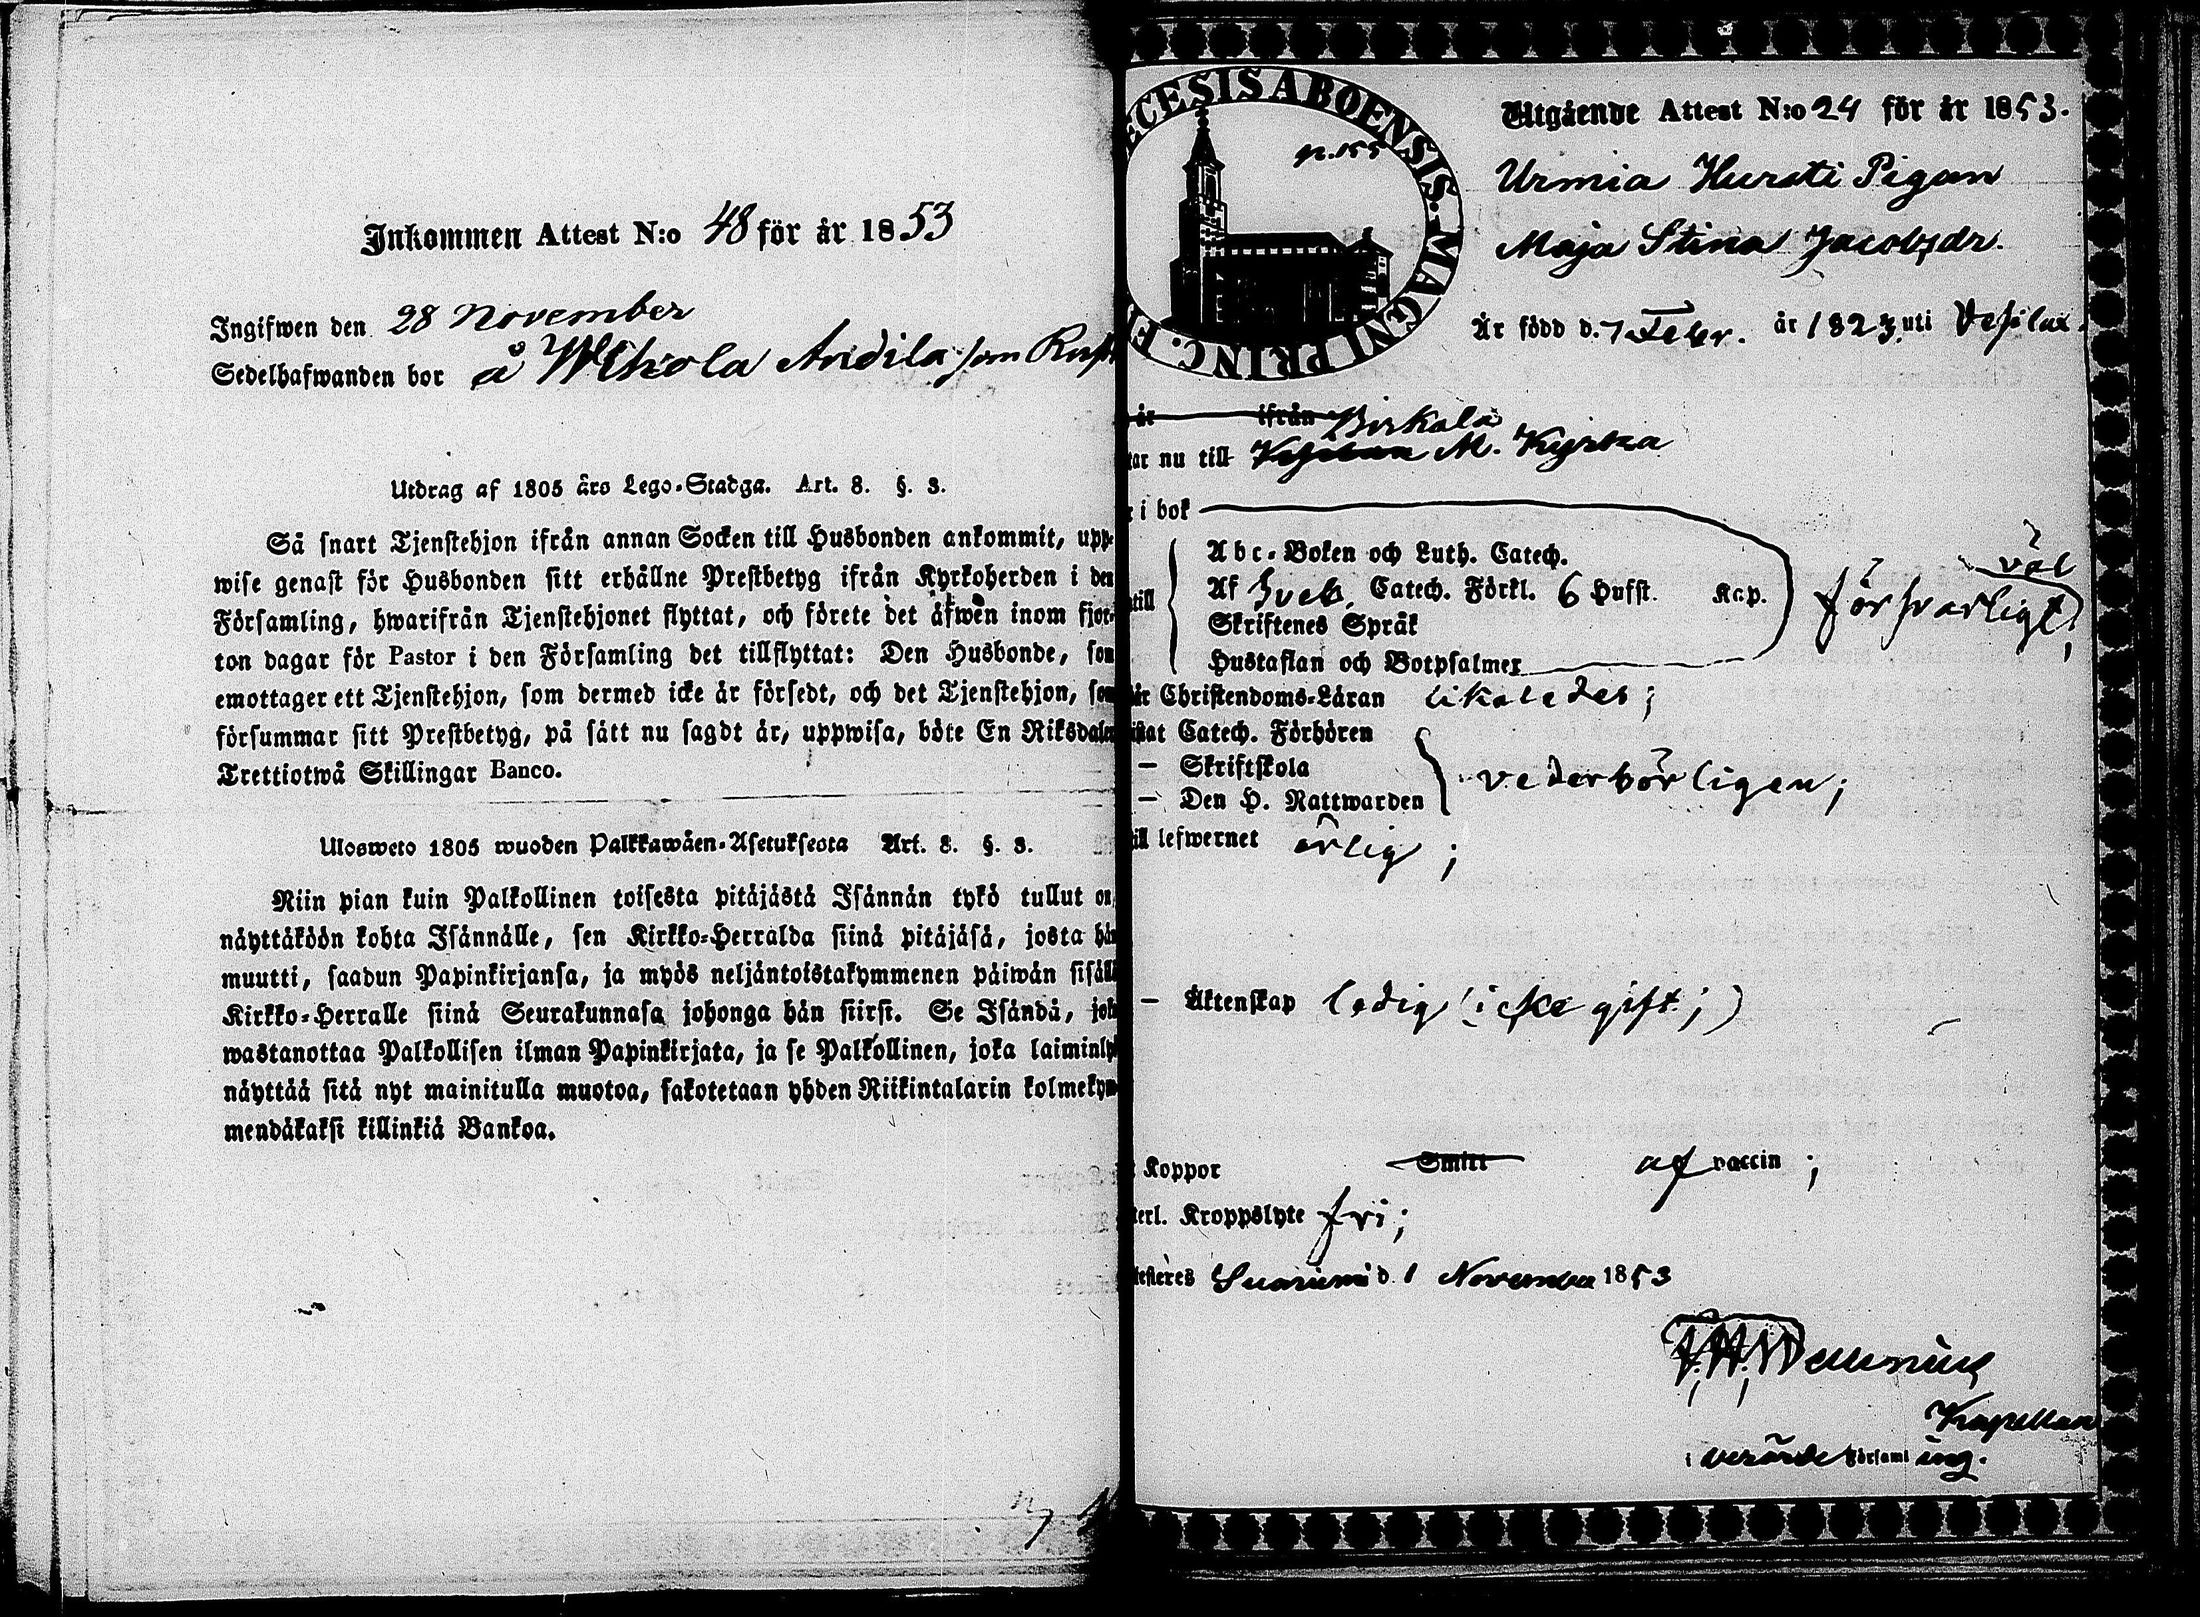 Inkommen Attest N:o 48 för år 1853
Ingifwen den 28 November
Sedelhafwanden bor å Wihola Andila som
Utdrag af 1805 års Lego-Stadga. Art. 8. §. 3.
Så snart Tjenstehjon ifrån annan Socken till Husbonden ankommit, upp-
wise genast för Husbonden sitt erhållne Prestbetyg ifrån Kyrkoherden i den
Församling, hwarifrån Tjenstehjonet flyttat, och förete det äfwen inom fjor-
ton dagar för Pastor i den Församling det tillflyttat: Den Husbonde, som
emottager ett Tjenstehjon, som dermed icke är försedt, och det Tjenstehjon, som
försummar sitt Prestbetyg, på sätt nu sagdt är, uppwisa, böte En Riksdaler
Trettiotwå Skillingar Banco.
Ulosweto 1805 wuoden Palkkawäen-Asetuksesta Art. 8. §. 3.
Niin pian kuin Palkollinen toisesta pitäjästä Isännän tykö tullut on
näyttäköön kohta Isännälle, sen Kirkko-Herralda siinä pitäjäsä, josta hän
muutti, saadun Papinkirjansa, ja myös neljäntoistakymmenen päiwän sisäll
Kirkko-Herralle siinä Seurakunnasa johonga hän siirsi. Se Isändä, jok
wastanottaa Palkollisen ilman Papinkirjata, ja se Palkollinen, joka laiminly
näyttää sitä nyt mainitulla muotoa, sakotetaan yhden Riikintalarin kolmekym
mendäkaksi killinkiä Bankoa.
ECESIS ABOENSIS. MAGNI PRINC. F
p. 155
Utgående Attest N:o 24 för år 1853.
Urmia Hursti Pigan
Maja Stina Jacobsdr.
Är född d. 7 Febr. år 1823 uti Vesilax.
är ifrån Birkala
tar nu till M. Kyrka
i bok
Abc-Boken och Luth. Catech.
till Af Sveb. Catech. Förkl. 6 Hufst. Kap. väl försvarligt;
Skriftenes Språk
Hustaflan och Botpsalmer
är Christendoms-Läran likaledes;
istat Catech. Förhören
— Skriftskola vederbörligen;
— Den H. Nattwarden
ill lefwernet ärlig;
— Äktenskap ledig (icke gift;)
Koppor Smitt af vaccin;
terl. Kroppslyte fri;
testeres Suoniemi d. 1 November 1853
Kapellan
i berörde Församling.